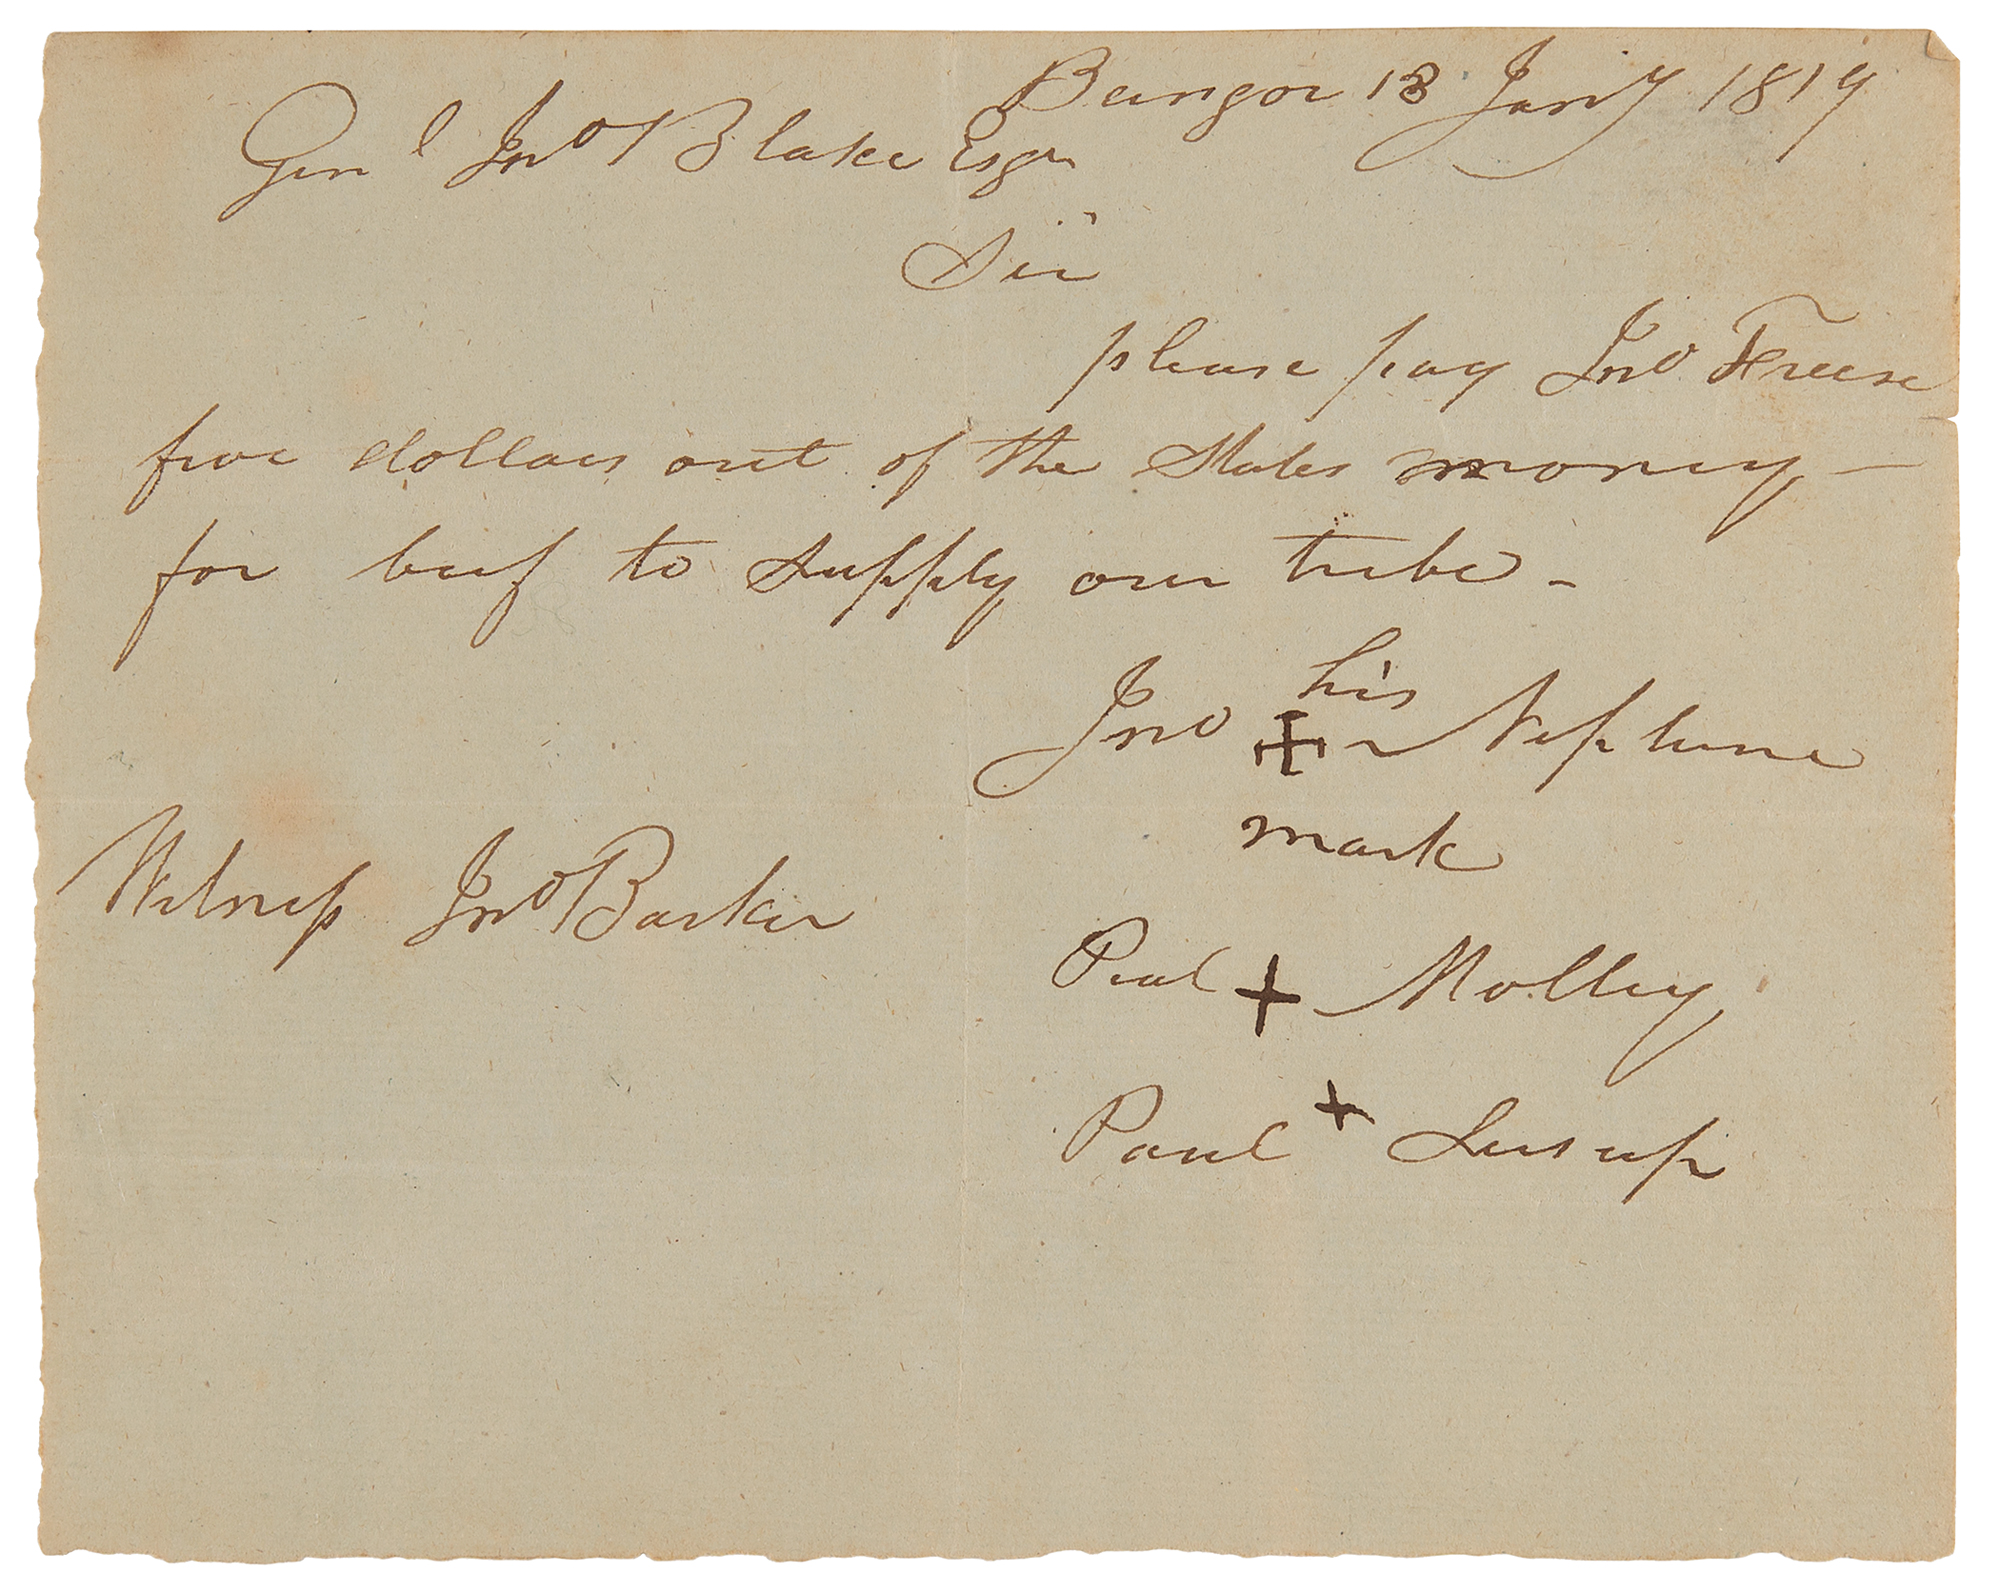 Bangor 18 Jany 1819
Genl Jno Blake Esqr
Sir
please pay Jno Freese
five dollars out of the States money —
for beef to supply our tribe —
his
Jno + Neptune
mark
Witness Jno Barker
Peal + Molley
Paul + Susup